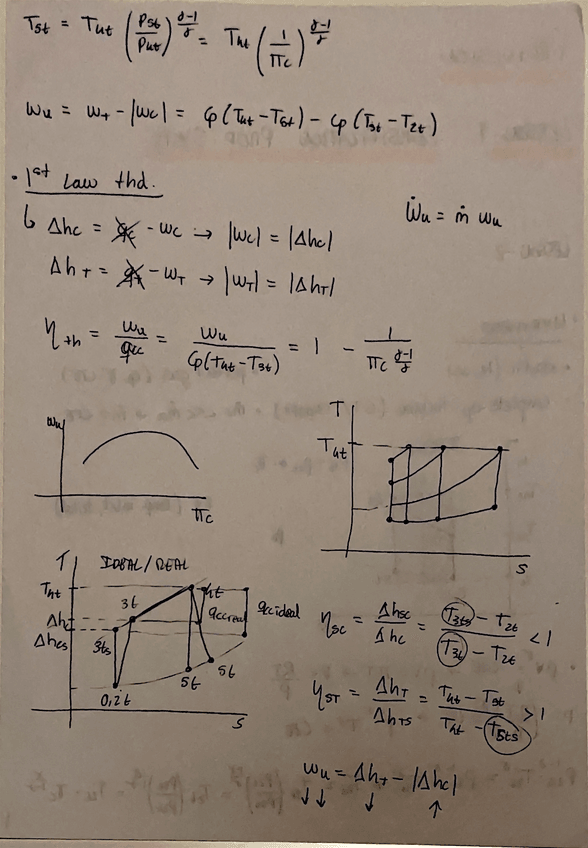 T5t = T4t (P5t/P4t)^γ-1/γ = T4t (1/πc)^γ-1/γ
wu = wT - |wc| = cp(T4t - T5t) - cp(T3t - T2t)
• 1st Law thd.
↳ Δhc = qc - wc → |wc| = |Δhc|
Ẇu = ṁ wu
ΔhT = qT - wT → |wT| = |ΔhT|
ηth = wu/qcc = wu/cp(T4t - T3t) = 1 - 1/πc^γ-1/γ
wu
πc
T
T4t
S
T IDEAL/REAL
T4t
4t
3t
Δhc
Δhcs
3ts
qcc real
qcc ideal
0,2t
5t
5t
S
ηsc = Δhsc/Δhc = T3ts - T2t/T3t - T2t < 1
ηsT = ΔhT/ΔhTs = T4t - T5t/T4t - T5ts > 1
wu = ΔhT - |Δhc|
↓↓ ↓ ↑